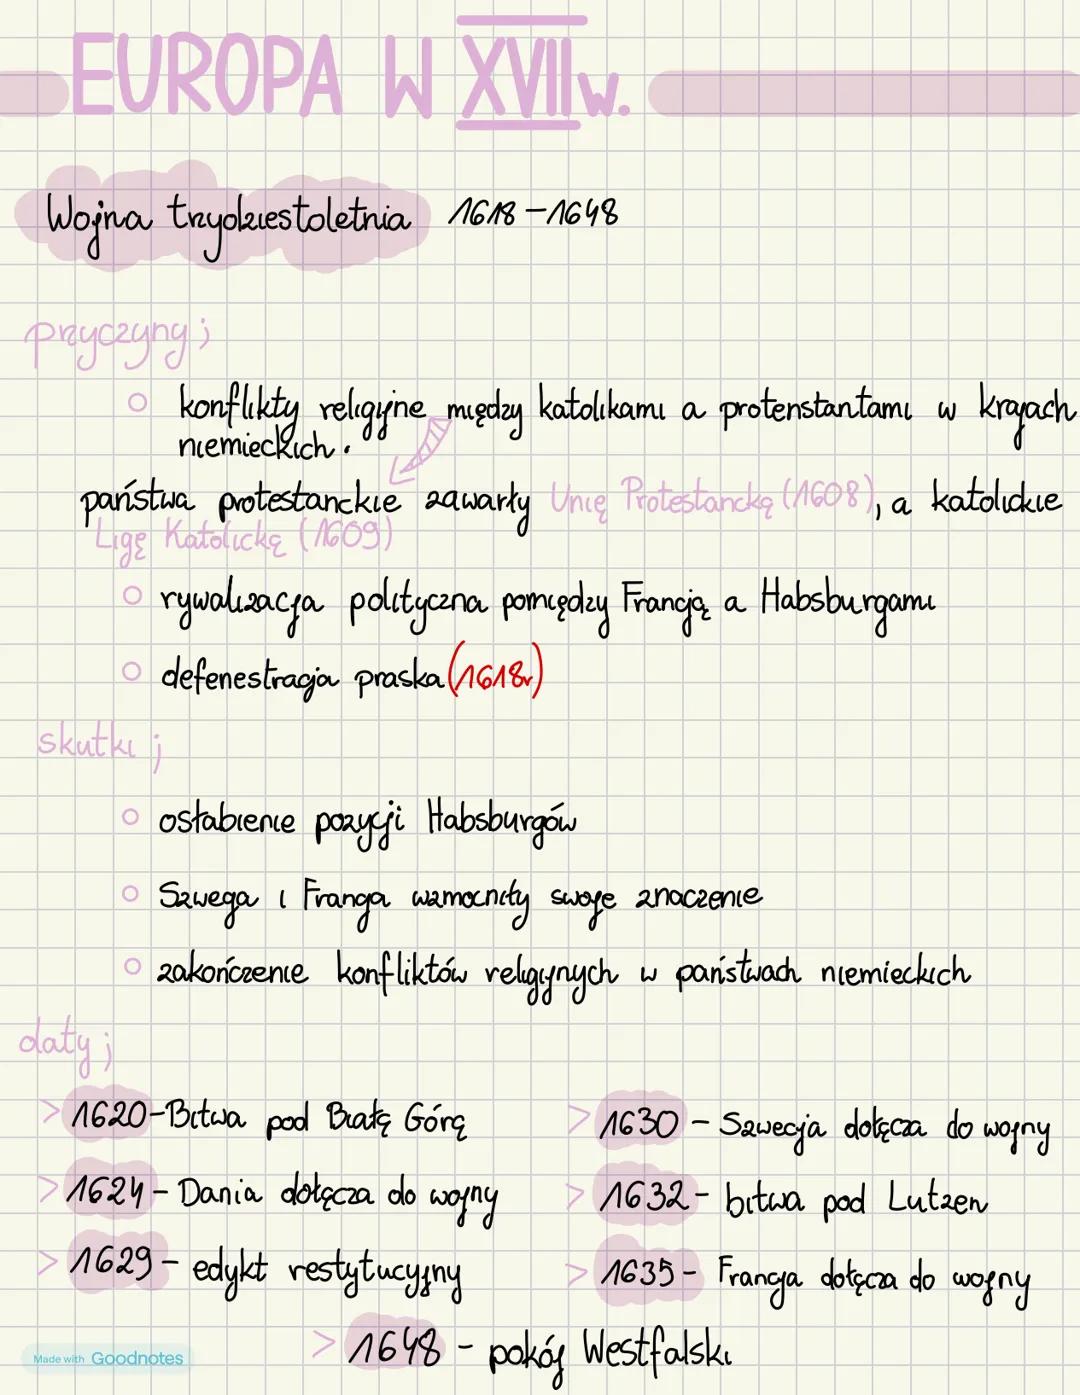 EUROPA W XVII w.
Wojna trzydziestoletnia 1618-1648
przyczyny ;
konflikty religijne między katolikami a protenstantami w krajach
niemieckich.
państwa protestanckie zawarły Unię Protestancką (1608), a katolickie
Ligę Katolicką (1609)
rywalizacja polityczna pomiędzy Francją a Habsburgami
defenestracja praska (1618r)
skutki ;
osłabienie pozycji Habsburgów
Szwecja i Francja wzmocniły swoje znaczenie
zakończenie konfliktów religijnych w państwach niemieckich
daty ;
> 1620-Bitwa pod Białą Górą
> 1624 - Dania dołącza do wojny
> 1629 - edykt restytucyjny
> 1630 - Szwecja dołącza do wojny
> 1632 - bitwa pod Lutzen
> 1635 - Francja dołącza do wojny
> 1648 - pokój Westfalski
Made with Goodnotes